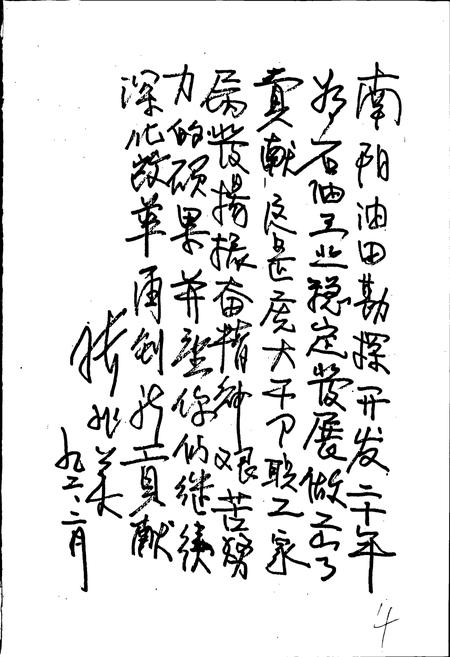 南阳油田勘探开发二十年
为石油工业稳定發展做出了
貢献,这是廣大干部职工家
属發揚振奋精神艰苦努
力的硕果并望你们继续
深化改革 创新貢献
九二、二月
14